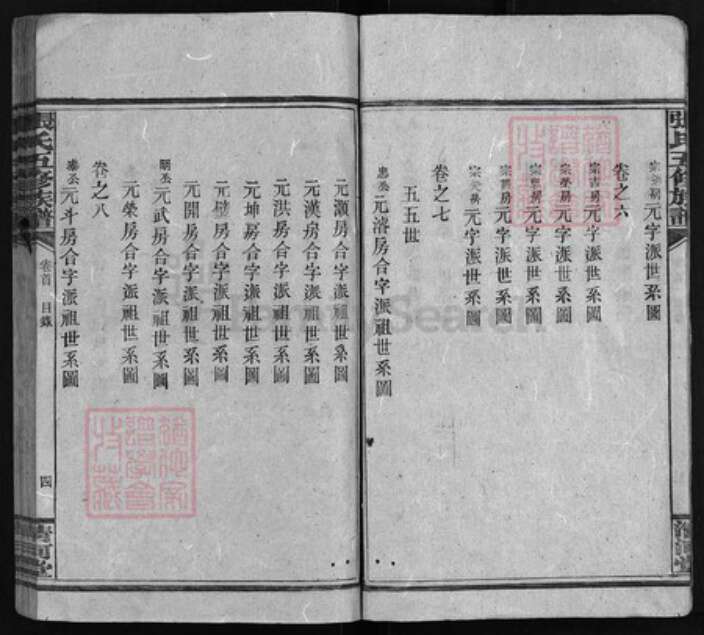 張氏五修族譜
元字派世系圖
卷之六
元字派世系圖
元字派世系圖
元字派世系圖
元字派世系圖
卷之七
五五世
忠公元濬房合字派祖世系圖
元灝房合字派祖世系圖
元漢房合字派祖世系圖
元洪房合字派祖世系圖
元坤房合字派祖世系圖
元璧房合字派祖世系圖
元開房合字派祖世系圖
元武房合字派祖世系圖
元榮房合字派祖世系圖
卷之八
忠公元斗房合字派祖世系圖
張氏五修族譜
卷首 目錄
四
清河堂
清河堂
Search